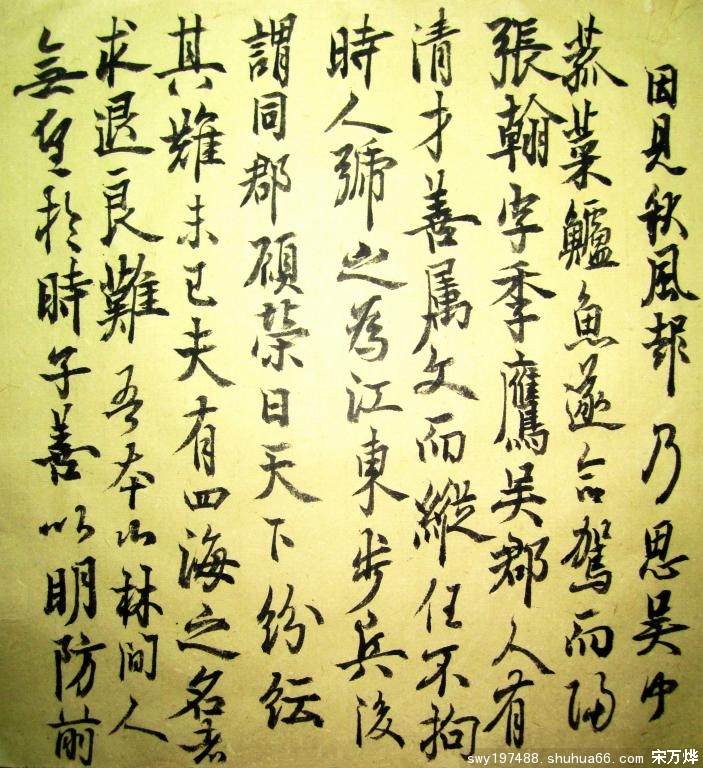 因見秋風起乃思吳中
菰菜鱸魚遂命駕而歸
張翰字季鷹吳郡人有
清才善属文而縱任不拘
時人號之為江東步兵後
謂同郡顧榮曰天下紛紜
其難未已夫有四海之名者
求退良難吾本山林間人
無望於時子善以明防前
swy197488.shuhua66.com 宋万烨